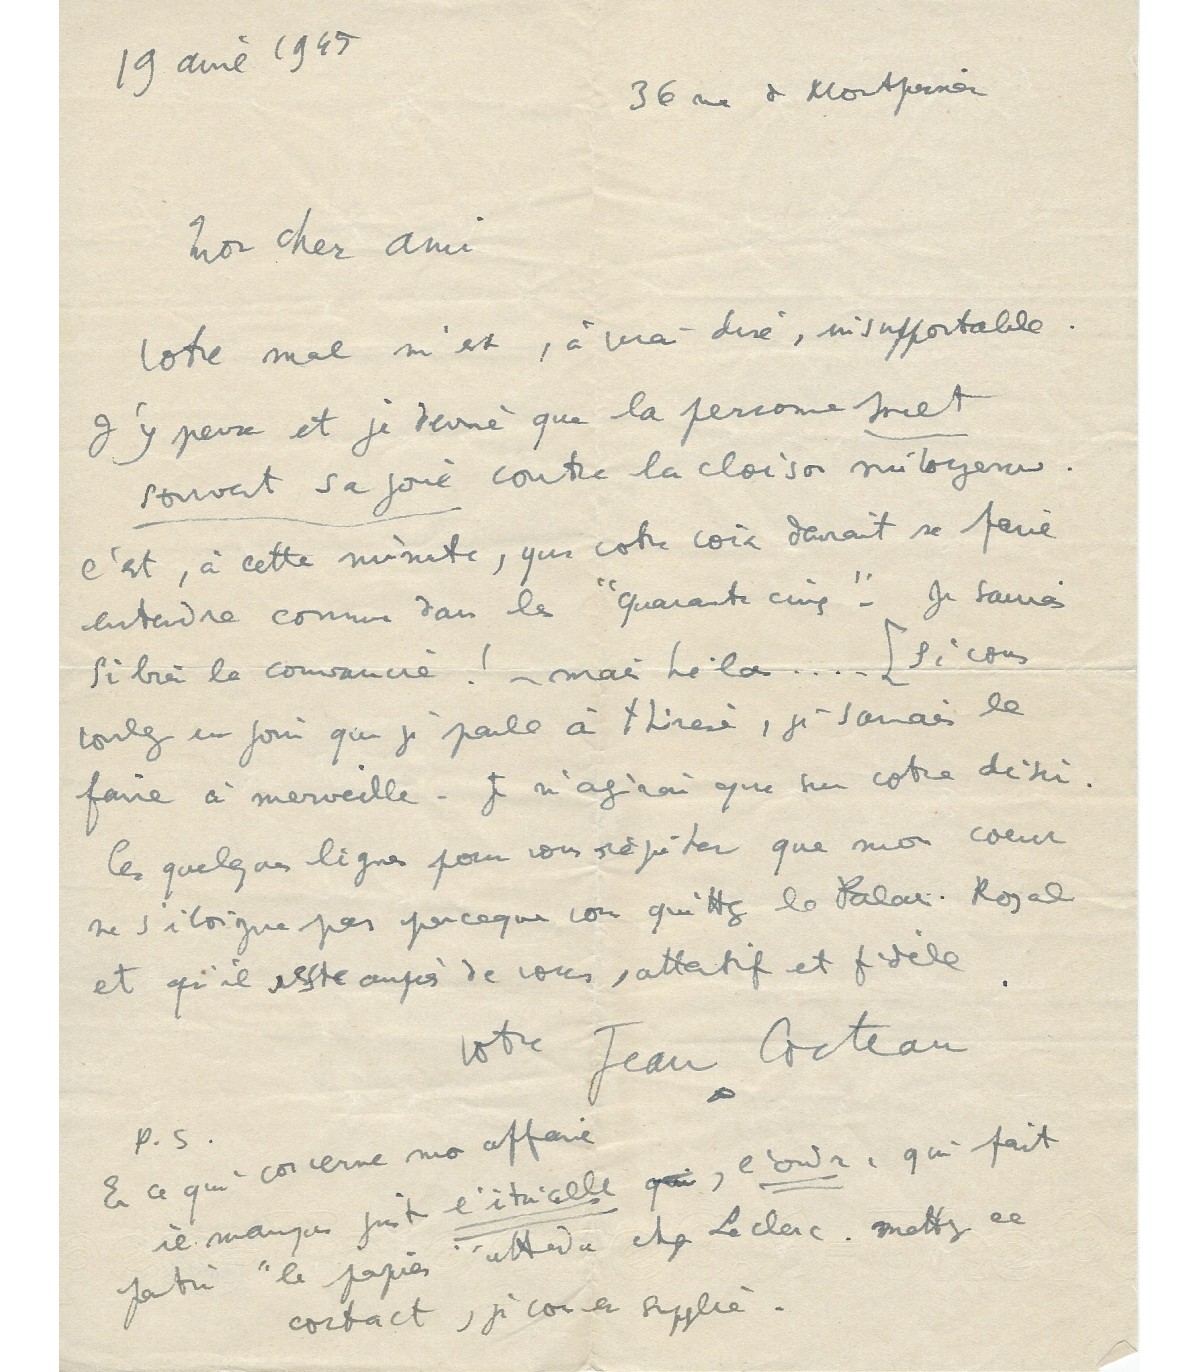 19 avril 1945
36 rue de Montpensier
Mon cher ami
Votre mal m'est, à vrai dire, insupportable.
J'y pense et je devine que la personne met
souvent sa joue contre la cloison mitoyenne.
C'est, à cette minute, que votre voix devrait se faire
entendre comme dans les "quarante cinq" - Je saurais
si bien la convaincre ! - mais hélas .... [si vous
voulez un jour que je parle à Thérèse, je saurais le
faire à merveille - Je n'agirai que sur votre désir.
Ces quelques lignes pour vous répéter que mon coeur
ne s'éloigne pas parce que vous quittez le Palais-Royal
et qu'il reste auprès de vous, attentif et fidèle.
votre Jean Cocteau
P.S.
En ce qui concerne mon affaire
il manque juste l'étincelle qui, l'ordre, qui fait
partir "le papier" attendu chez Leclerc. mettez ce
contact, je vous en supplie.